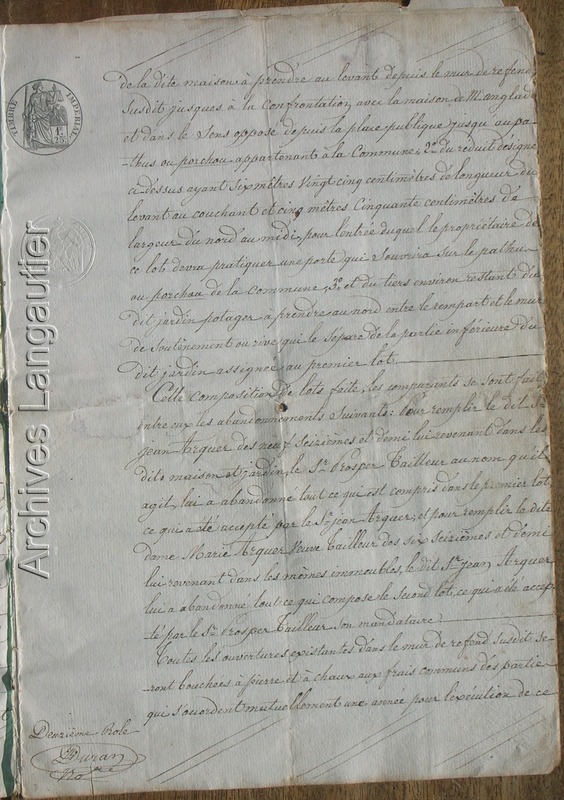 de la dite maison à prendre au levant depuis le mur de refend
susdit jusques à la confrontation avec la maison de Mr anglade
et dans le sens opposé depuis la place publique jusqu'au pa-
-thus ou porchou appartenant à la Commune, 2o du reduit désigné
ci dessus ayant six mètres Vingt cinq centimètres de longueur du
levant au couchant et cinq mètres Cinquante centimètres de
largeur du nord au midi, pour l'entrée duquel le propriétaire de
ce lot devra pratiquer une porte qui s'ouvrira sur le pathus
ou porchou de la Commune, 3o et du tiers environ restant du
dit jardin potager à prendre au nord entre le rempart et le mur
de soutènement ou rive qui le sépare de la partie inférieure du
dit jardin assignée au premier lot.
Cette composition de lots faite, les comparants se sont fait
entre eux les abandonnements suivants: Pour remplir le dit Sr
jean Arguer des neuf seizièmes et demi lui revenant dans les
dits maison et jardin, le Sr Prosper Tailleur au nom qu'il
agit, lui a abandonné tout ce qui est compris dans le premier lot,
ce qui a été accepté par le Sr jean Arguer; et pour remplir la dite
dame Marie Arguer Veuve Tailleur des six seizièmes et demi
lui revenant dans les mêmes immeubles, le dit Sr Jean Arguer
lui a abandonné tout ce qui compose le second lot, ce qui a été accep-
té par le Sr Prosper Tailleur son mandataire.
Toutes les ouvertures existantes dans le mur de refend susdit se-
-ront bouchées à pierre et à chaux aux frais communs des parties
qui s'accordent mutuellement une année pour l'exécution de ce
Deuxième Rôle
Duran
Nre
TIMBRE IMPERIAL
1F
25C
Archives Langautier